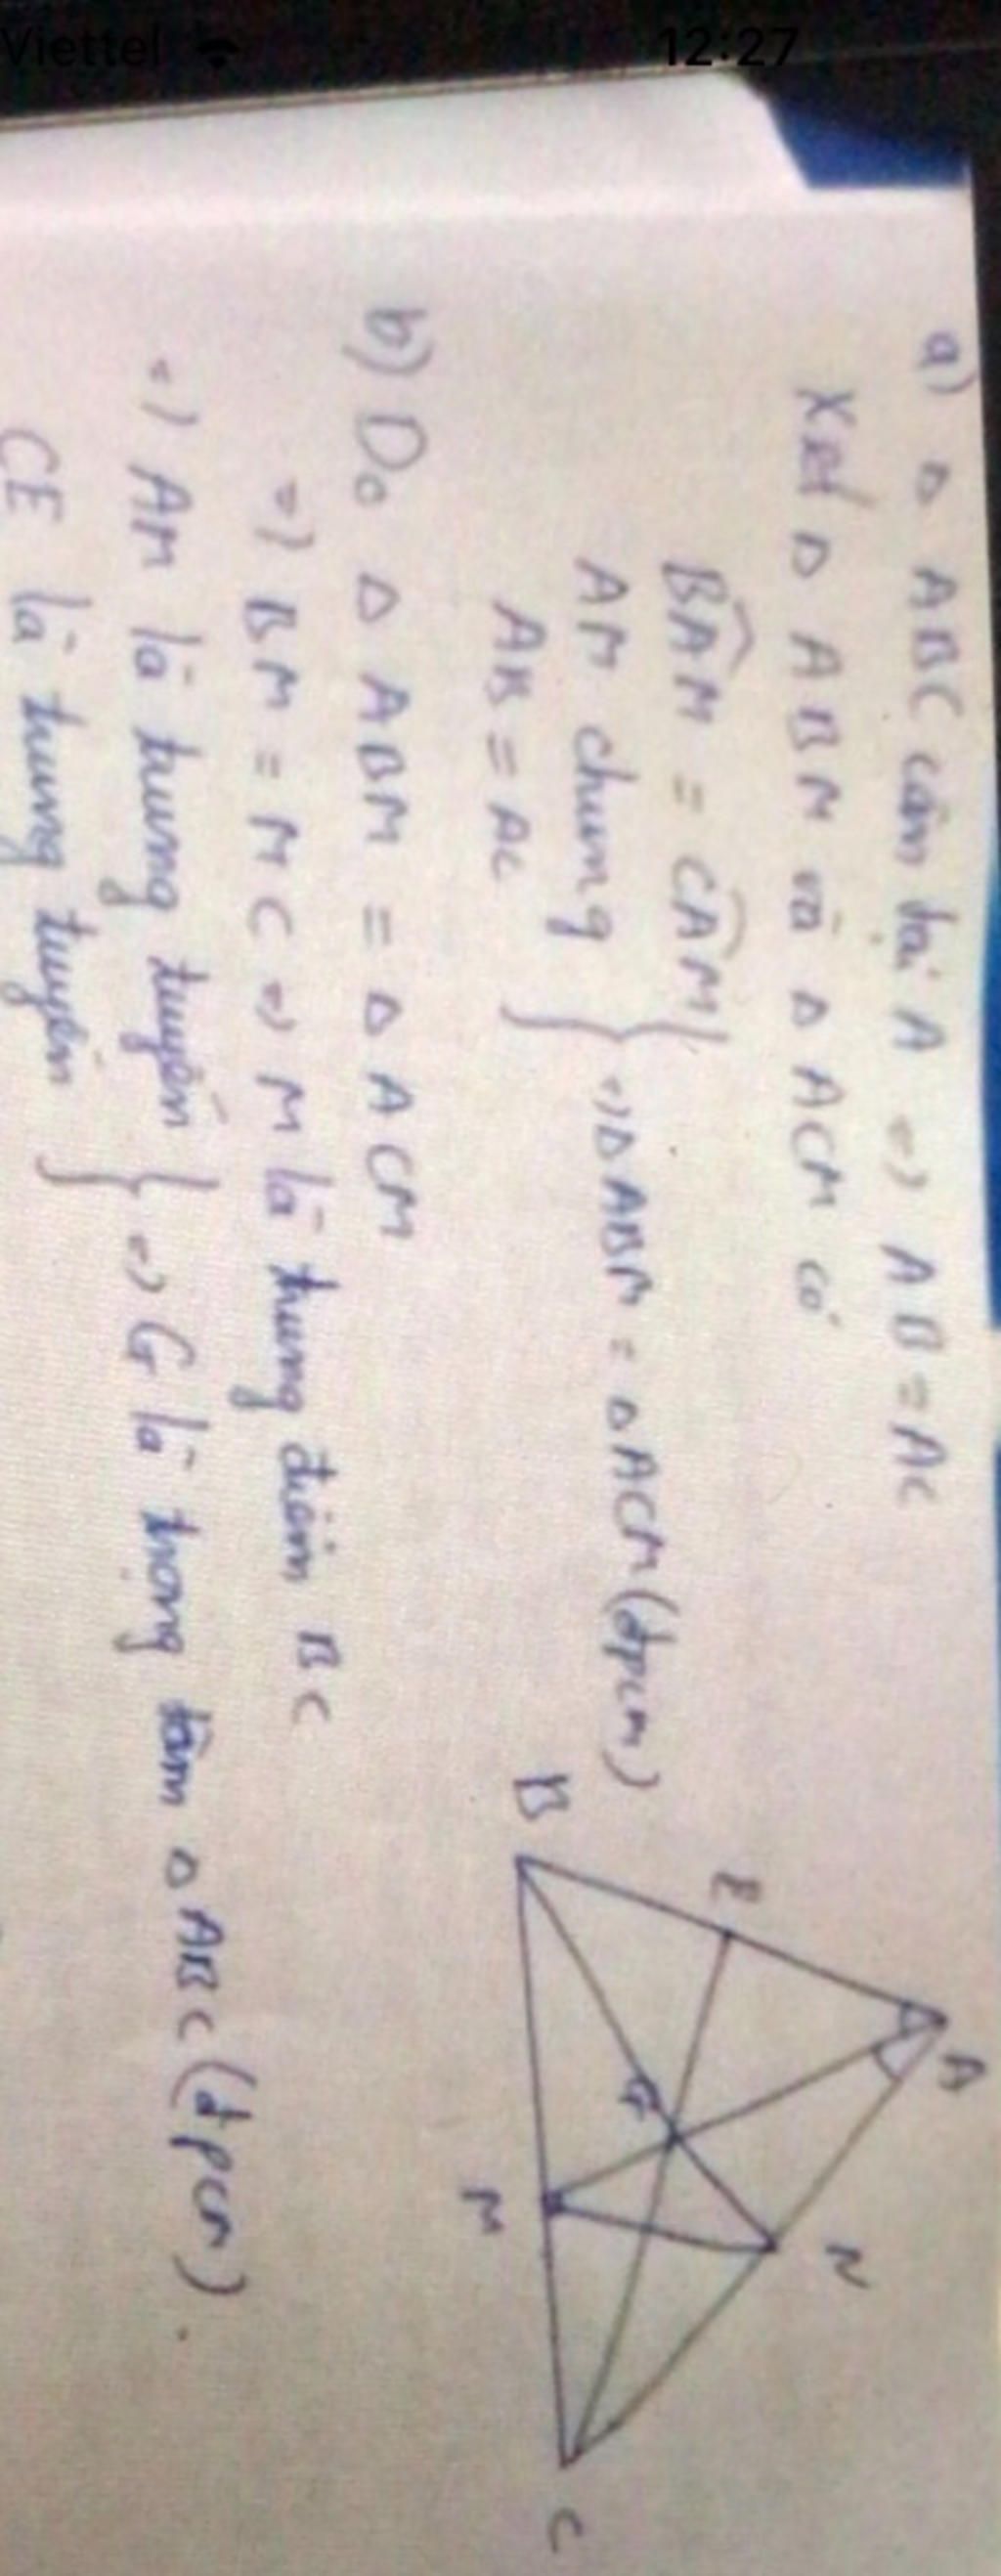 Viettel 12:27
a) Δ ABC cân tại A => AB = AC
Xét Δ ABM và Δ ACM có
BAM = CAM
AM chung } => Δ ABM = Δ ACM (đpcm)
AB = AC
b) Do Δ ABM = Δ ACM
=> BM = MC => M là trung điểm BC
=> AM là trung tuyến } => G là trọng tâm Δ ABC (đpcm).
CE là trung tuyến
A
E
N
G
B
M
C